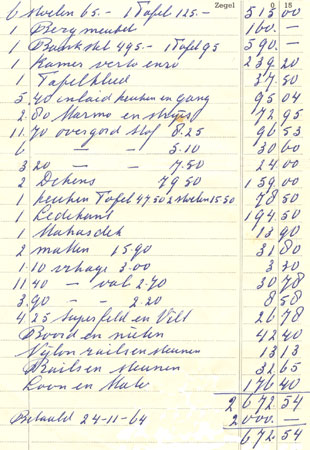 Zegel 0 18
6 stoelen 65.- 1 Tafel 125.- 515 00
1 Bergmeubel 100.-
1 Bankstel 495.- 1 Tafel 95 590.-
1 Kamer 239.20
1 Tafelkleed 37.50
5.40 inlaid keuken en gang 95 04
2.80 Marmo en 72 95
11.70 overgord stof 8.25 96 53
6 — — 5.10 30 00
3.20 — — 7.50 24.00
2 Dekens 79.50 159.00
1 keuken Tafel 47.50 2 stoelen 15.50 78 50
1 Ledikant 194.50
1 Matrasdek 13 90
2 matten 15.90 31 80
1.10 vitrage 3.00 3 30
11.40 — val 2.70 30 78
3.90 — — 2.20 8 58
4.25 Superfeld en Vilt 26 78
Boord en 42 40
Nylon rails en steunen 13 13
Rails en steunen 32 65
Loon en Mate 176 40
2 672 54
Betaald 24-11-64 2 000.—
672 54